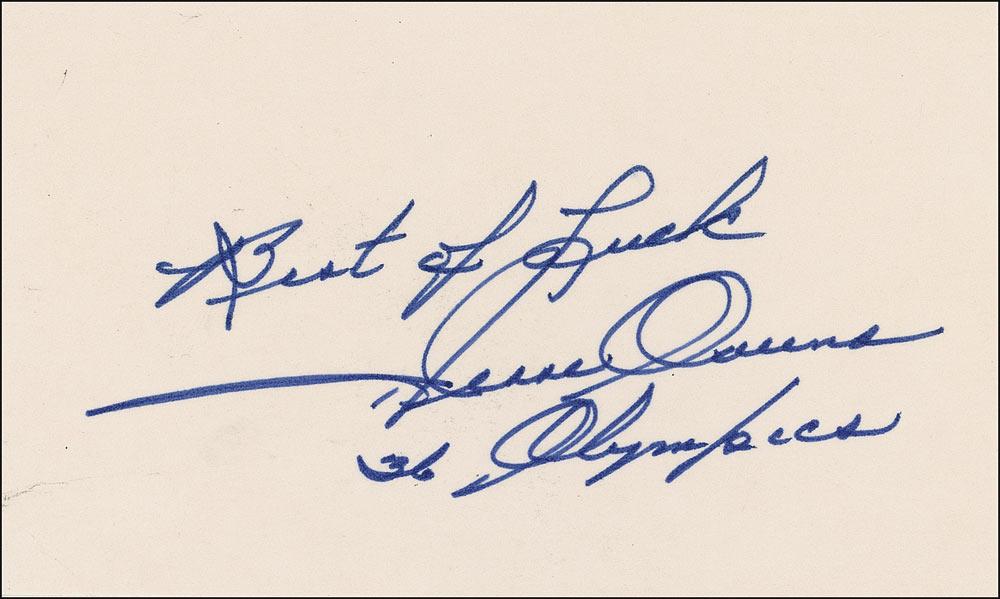 Best of Luck
Jesse Owens
36 Olympics